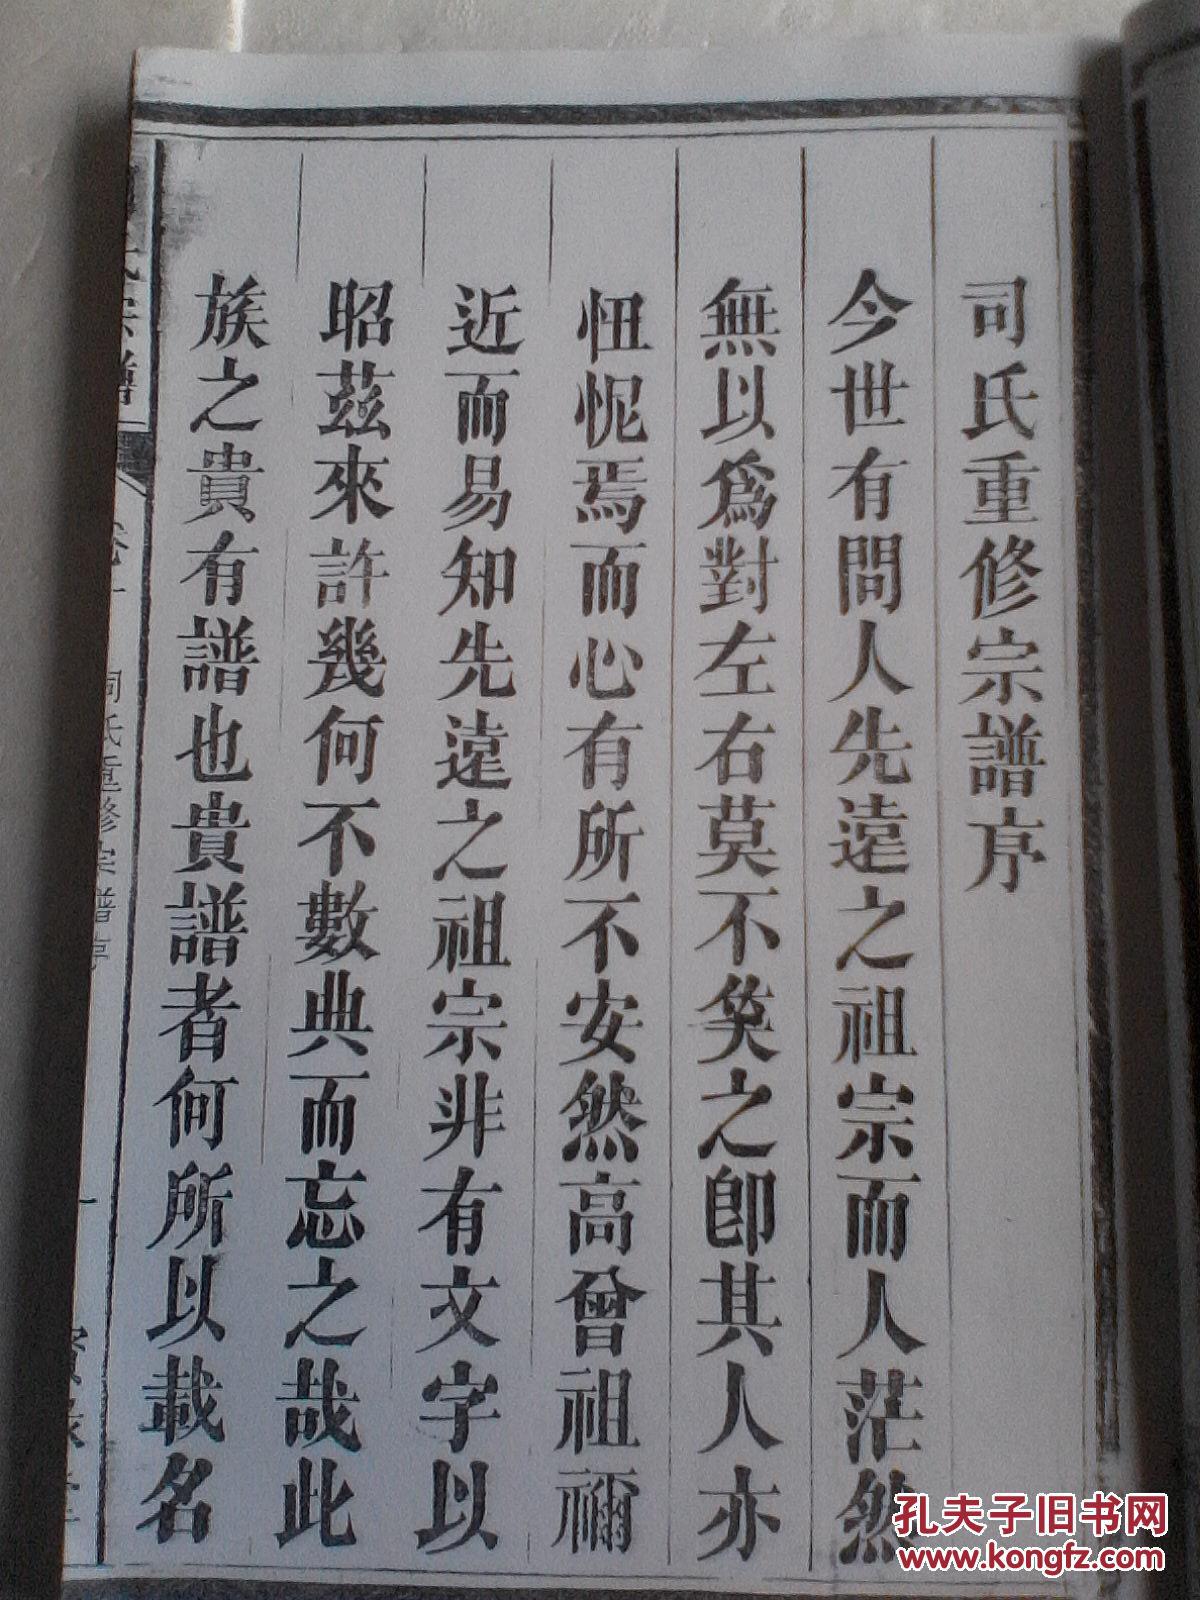 司氏重修宗譜序
今世有問人先遠之祖宗而人茫然
無以為對左右莫不笑之卽其人亦
忸怩焉而心有所不安然高曾祖禰
近而易知先遠之祖宗非有文字以
昭茲來許幾何不數典而忘之哉此
族之貴有譜也貴譜者何所以載名
氏宗譜
卷一
司氏重修宗譜序
一
孔夫子旧书网
www.kongfz.com